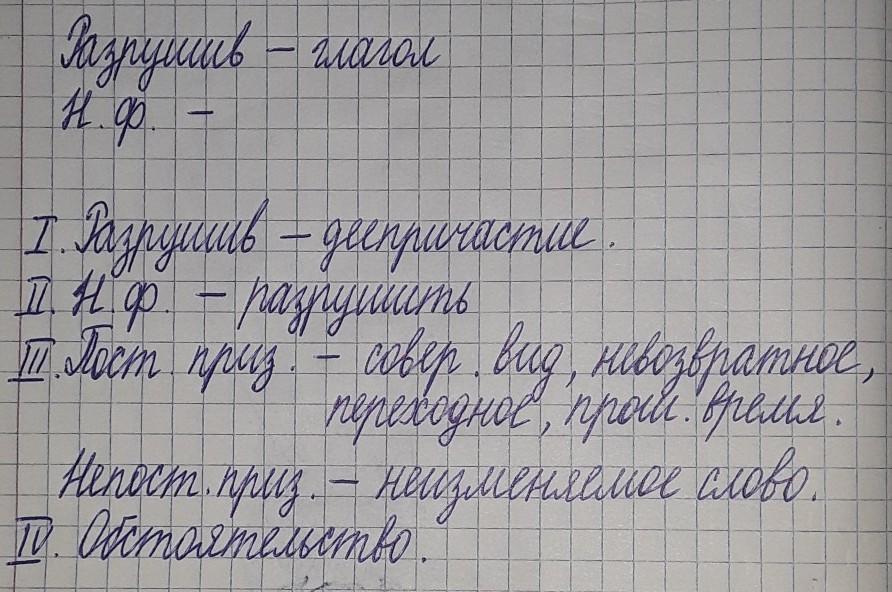 Разрушив – глагол
Н. ф. –
I. Разрушив – деепричастие.
II. Н. ф. – разрушить
III. Пост. приз. – совер. вид, невозвратное,
переходное, прош. время.
Непост. приз. – неизменяемое слово.
IV. Обстоятельство.